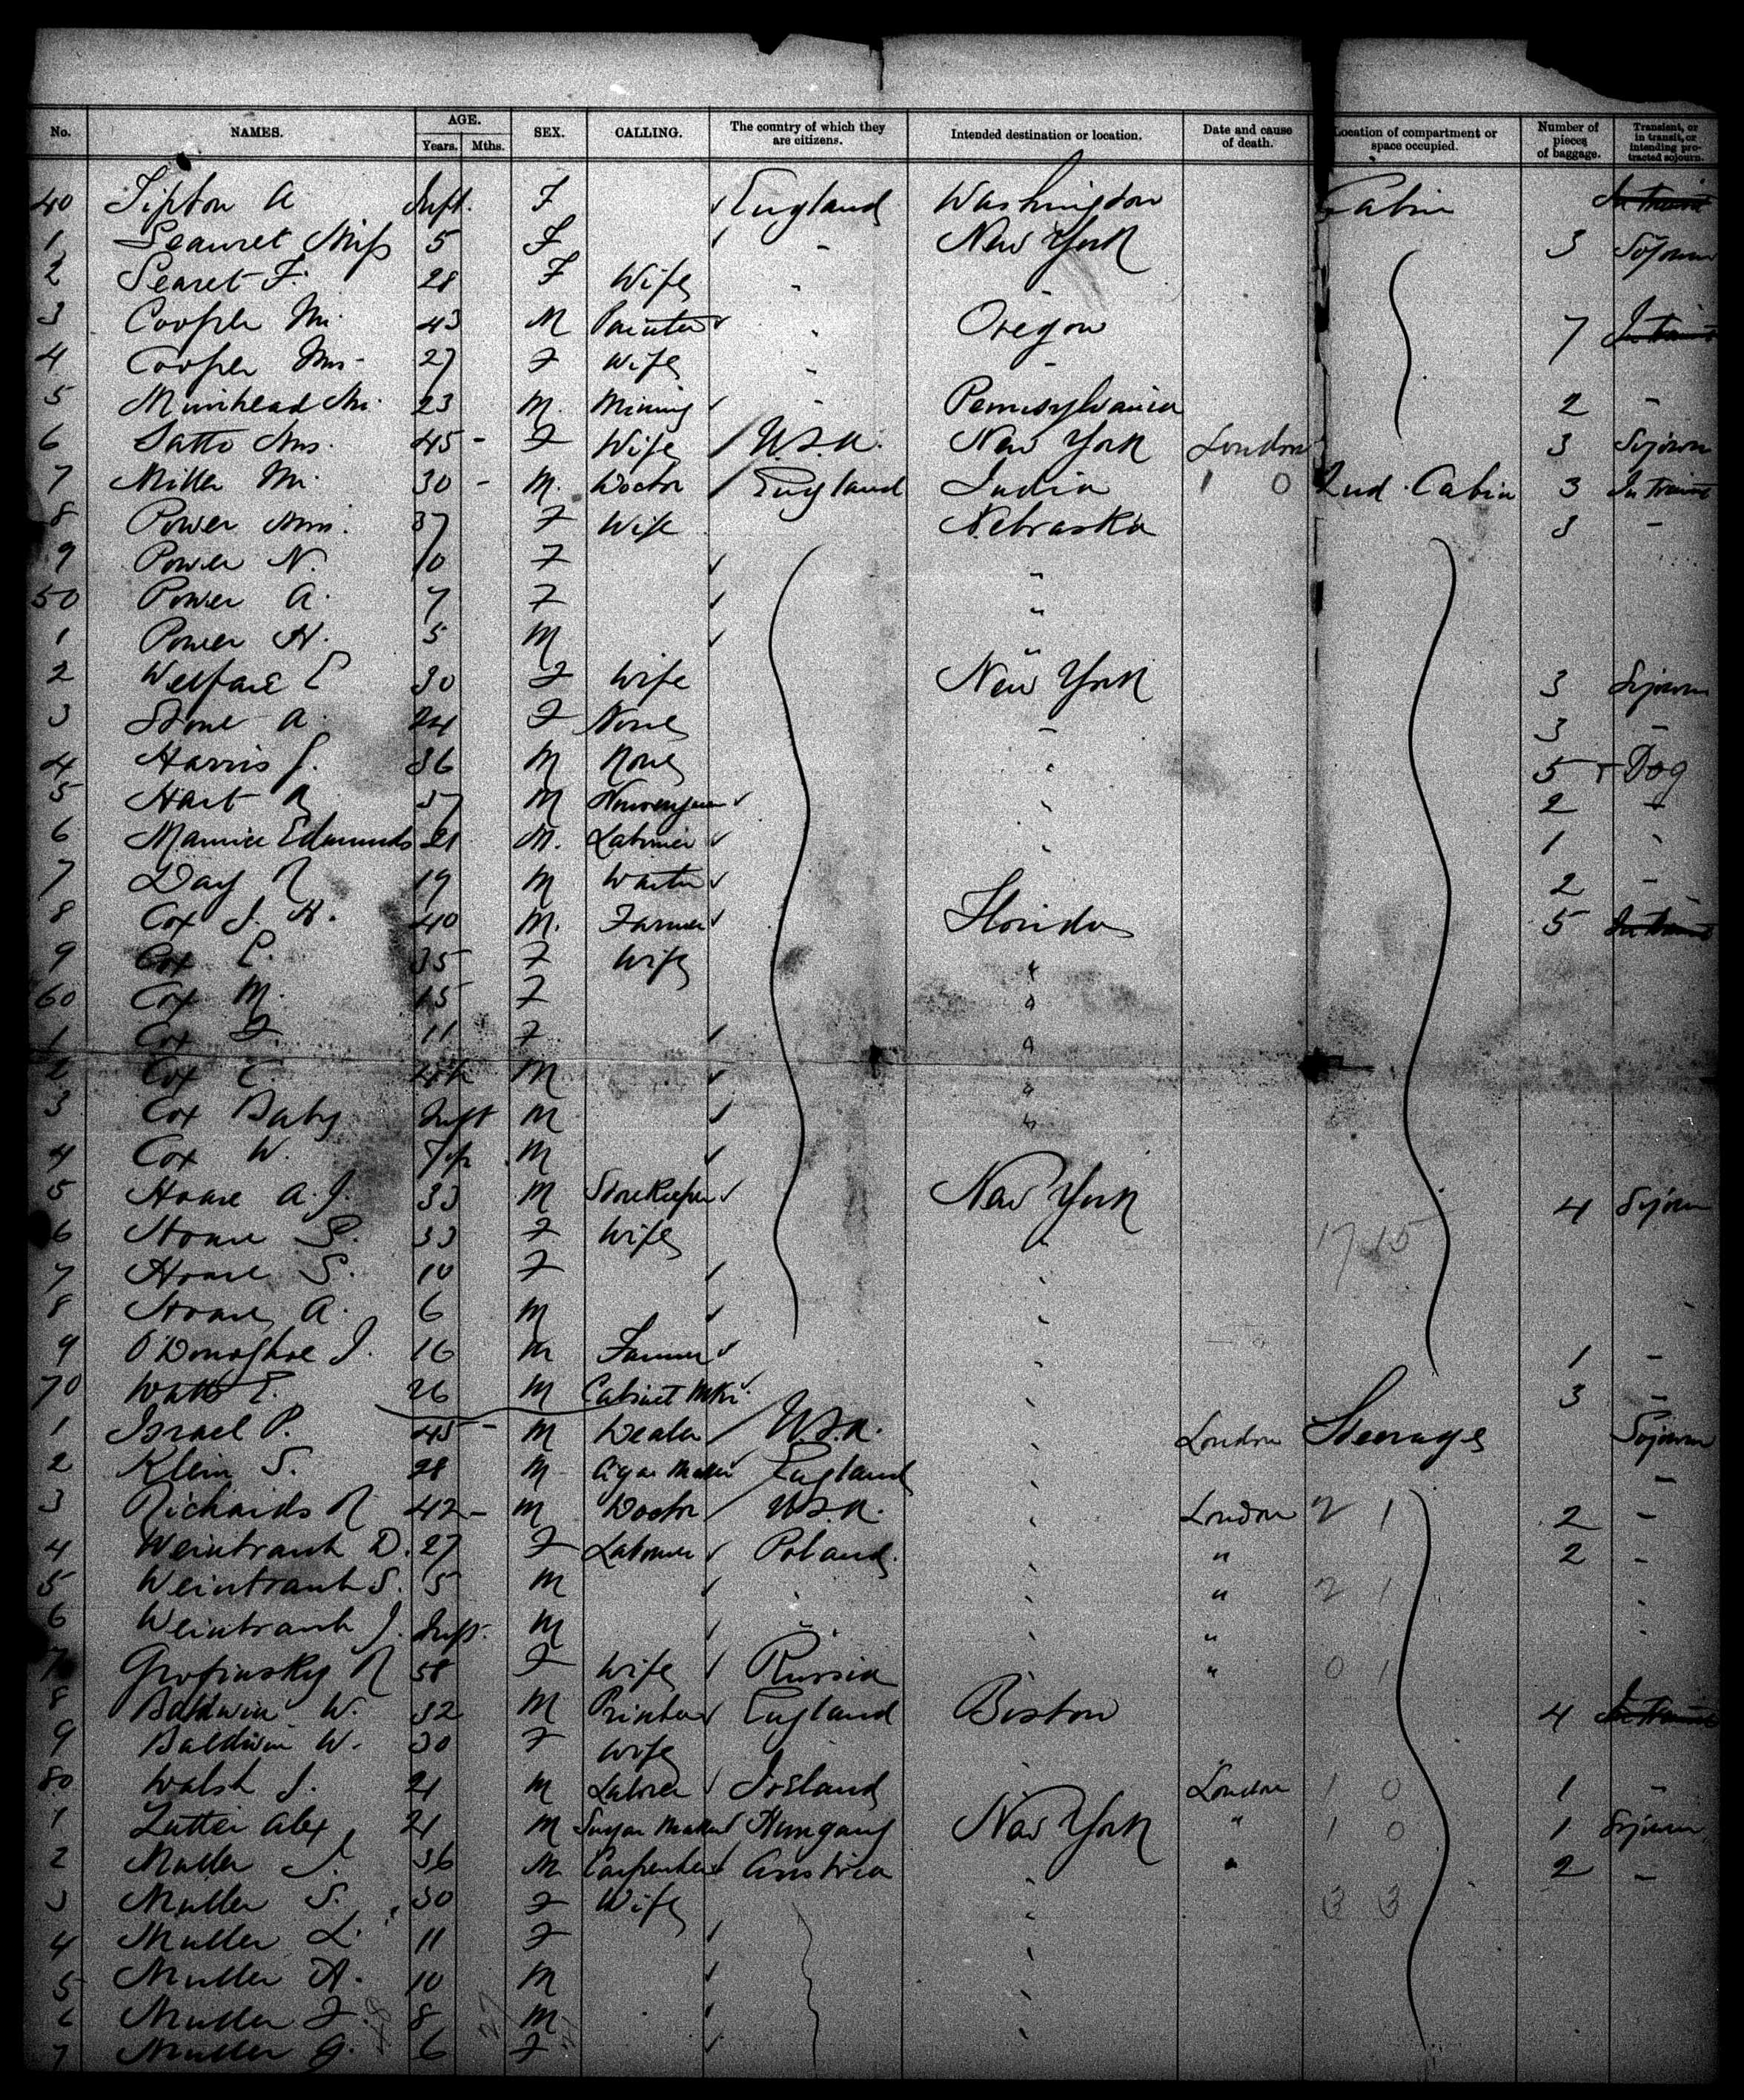 No. NAMES. AGE. Years. Mths. SEX. CALLING. The country of which they are citizens. Intended destination or location. Date and cause of death. Location of compartment or space occupied. Number of pieces of baggage. Transient, or in transit, or intending protracted sojourn.
40 Tipton A Inft. F England Washington Cabin
1 Miss 5 F " New York 3 Sojourn
2 F. 28 F Wife "
3 Cooper Mr. 43 M Painter " Oregon 7
4 Cooper Mrs 27 F Wife " "
5 Muirhead Mr. 23 M. Mining " Pennsylvania 2 "
6 Mrs. 45 - F Wife U.S.A. New York London 3 Sojourn
7 Miller Mr. 30 - M. Doctor England India 1 0 2nd. Cabin 3 In Transit
8 Power Mrs. 37 F Wife Nebraska 3 "
9 Power N. 10 F "
50 Power A. 7 F "
1 Power H. 5 M "
2 Welfare E 30 F Wife New York 3 Sojourn
3 Stone A. 24 F None " 3 "
4 Harris J. 36 M None " 5 + Dog
5 Hart 37 M " 2 "
6 Maurice Edmunds 21 M. Laborer " 1 "
7 Day R 19 M Waiter 2 "
8 Cox J. H. 40 M. Farmer Florida 5
9 Cox E. 35 F Wife "
60 Cox M. 15 F "
1 Cox F. 11 F "
2 Cox E. M "
3 Cox Baby Inft M "
4 Cox W. M
5 Hoare A. J. 33 M Storekeeper New York 4 Sojourn
6 Hoare 33 F Wife " 17 15
7 Hoare S. 10 F "
8 Hoare A. 6 M "
9 O'Donoghoe J. 16 M Farmer " 1 "
70 Watts E. 26 M Cabinet Mkr. 3 "
1 Israel P. 45 - M Dealer U.S.A. " London Steerage Sojourn
2 Klein S. 28 M Cigar Maker England " "
3 Richards R 42 - M Doctor U.S.A. " London 2 1 2 "
4 Weintraub D. 27 F Laborer Poland. " " 2 "
5 Weintraub S. 5 M " " " 2 1 "
6 Weintraub J. Inft. M " " " "
7 58 F Wife Russia " 0 1
8 Baldwin W. 32 M Printer England Boston 4
9 Baldwin W. 30 F Wife "
80 Walsh J. 21 M Laborer Ireland " London 1 0 1 "
1 Alex 21 M Sugar Maker Hungary New York " 1 0 1 Sojourn
2 Muller J. 36 M Carpenter Austria " " 2 "
3 Muller S. 30 F Wife " 3 3
4 Muller L. 11 F "
5 Muller A. 10 M "
6 Muller F. 8 M "
7 Muller G. 6 F "